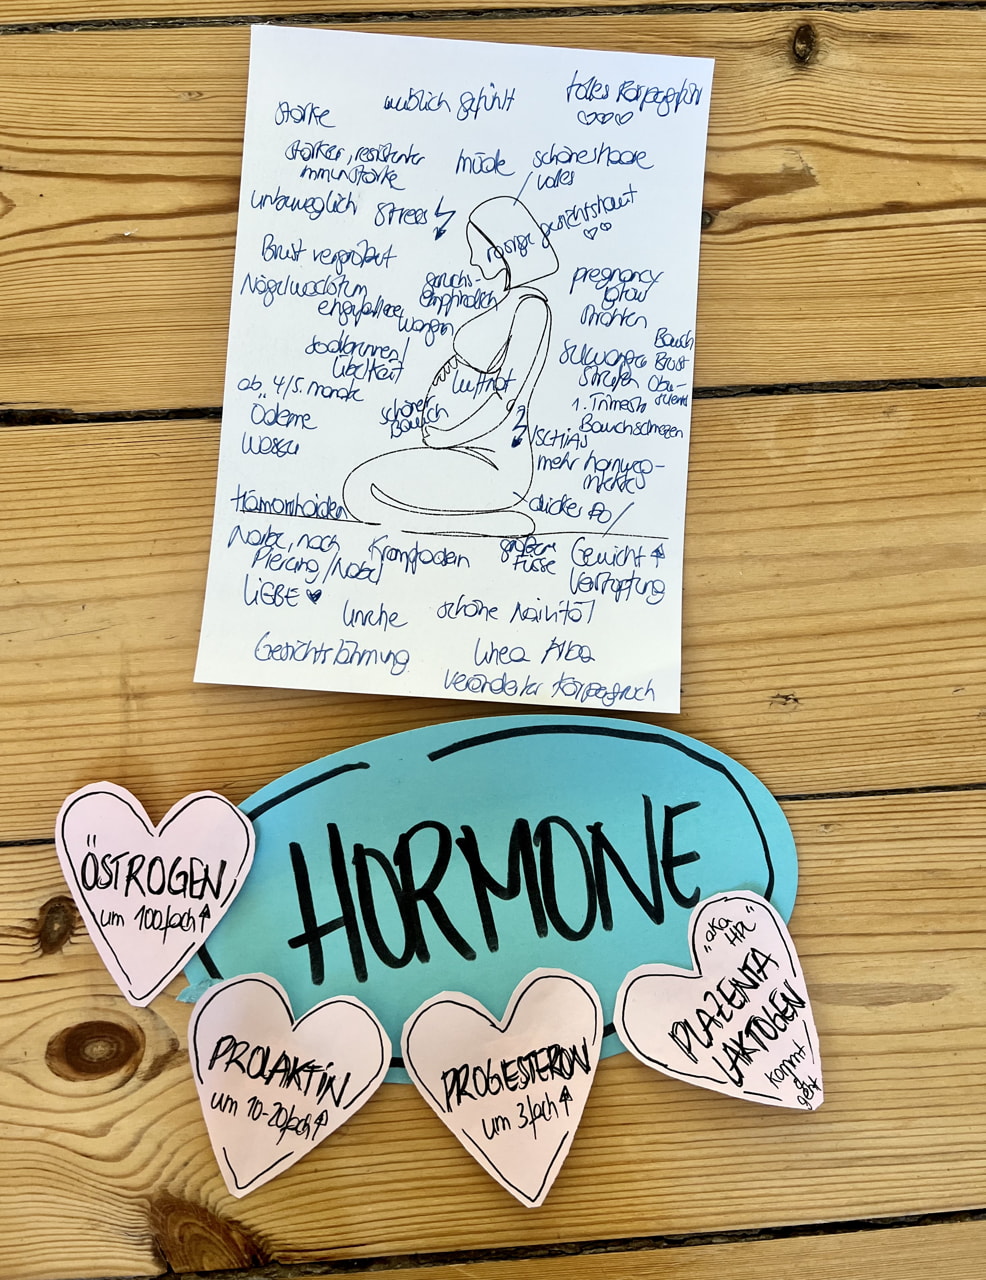 Stärke
weiblich gefühlt
tolles Körpergefühl
stärker, resistenter
Immunstärke
müde
schönes Haare
volles
unbeweglich
Stress
rosige Gesichtshaut
Brust vergrößert
geruchs-
empfindlich
pregnancy
glow
Nägelwachstum
eingefallene
Wangen
Strahlen
Sodbrennen/
Übelkeit
Luftnot
Schwanger
Streifen
Bauch
Brust
Ober-
schenkel
ab 4/5. Monat
Ödeme
Wasser
schöner
Bauch
1. Trimester
Bauchschmerzen
ISCHIAS
mehr
dicker Po
Hämorrhoiden
Narbe, nach
Piercing/Nabel
Krampfadern
größere
Füsse
Gewicht ↑
Verstopfung
LiEBE ♥
Unruhe
schöne Naivität
Gesichtslähmung
Linea Alba
veränderter Körpergeruch
HORMONE
ÖSTROGEN
um 100fach ↑
PROLAKTiN
um 10-20fach ↑
PROGESTERON
um 3fach ↑
"aka
HPL"
PLAZENTA
LAKTOGEN
kommt/
geht